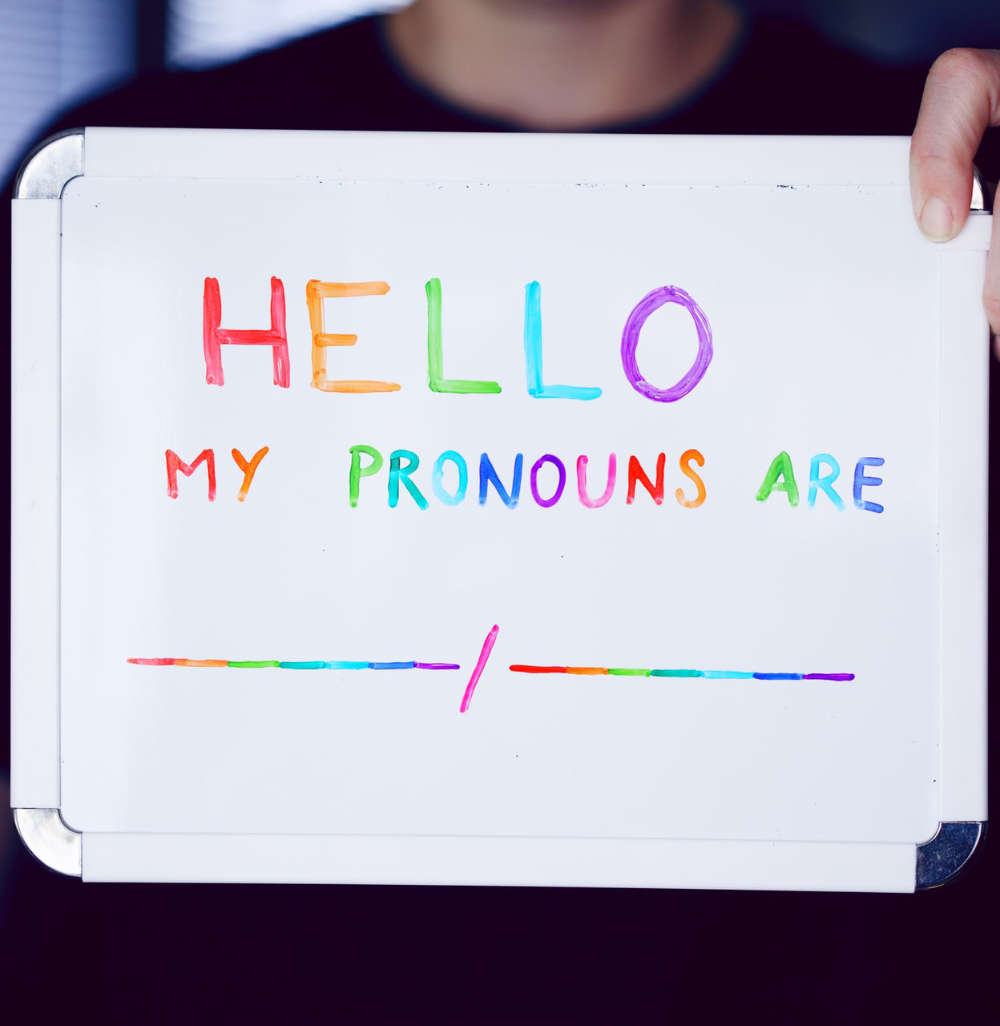 HELLO
MY PRONOUNS ARE
/